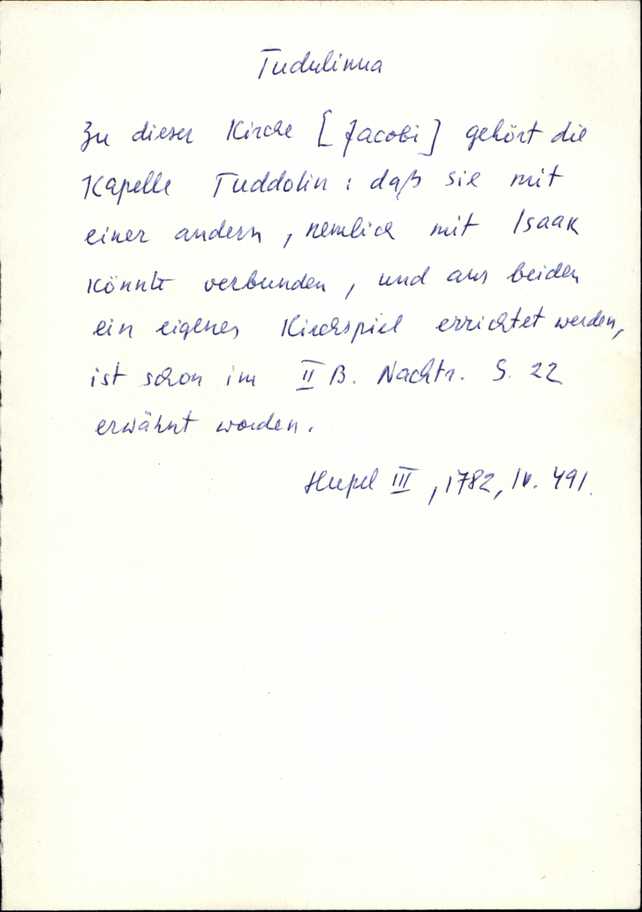 Tudulinna
Zu dieser Kirche [Jacobi] gehört die
Kapelle Tuddolin: daß sie mit
einer andern, nemlich mit Isaak
könnte verbunden, und aus beiden
ein eigenes Kirchspiel errichtet werden,
ist schon im II B. Nachtr. S. 22
erwähnt worden.
Hupel III, 1782, lk. 491.